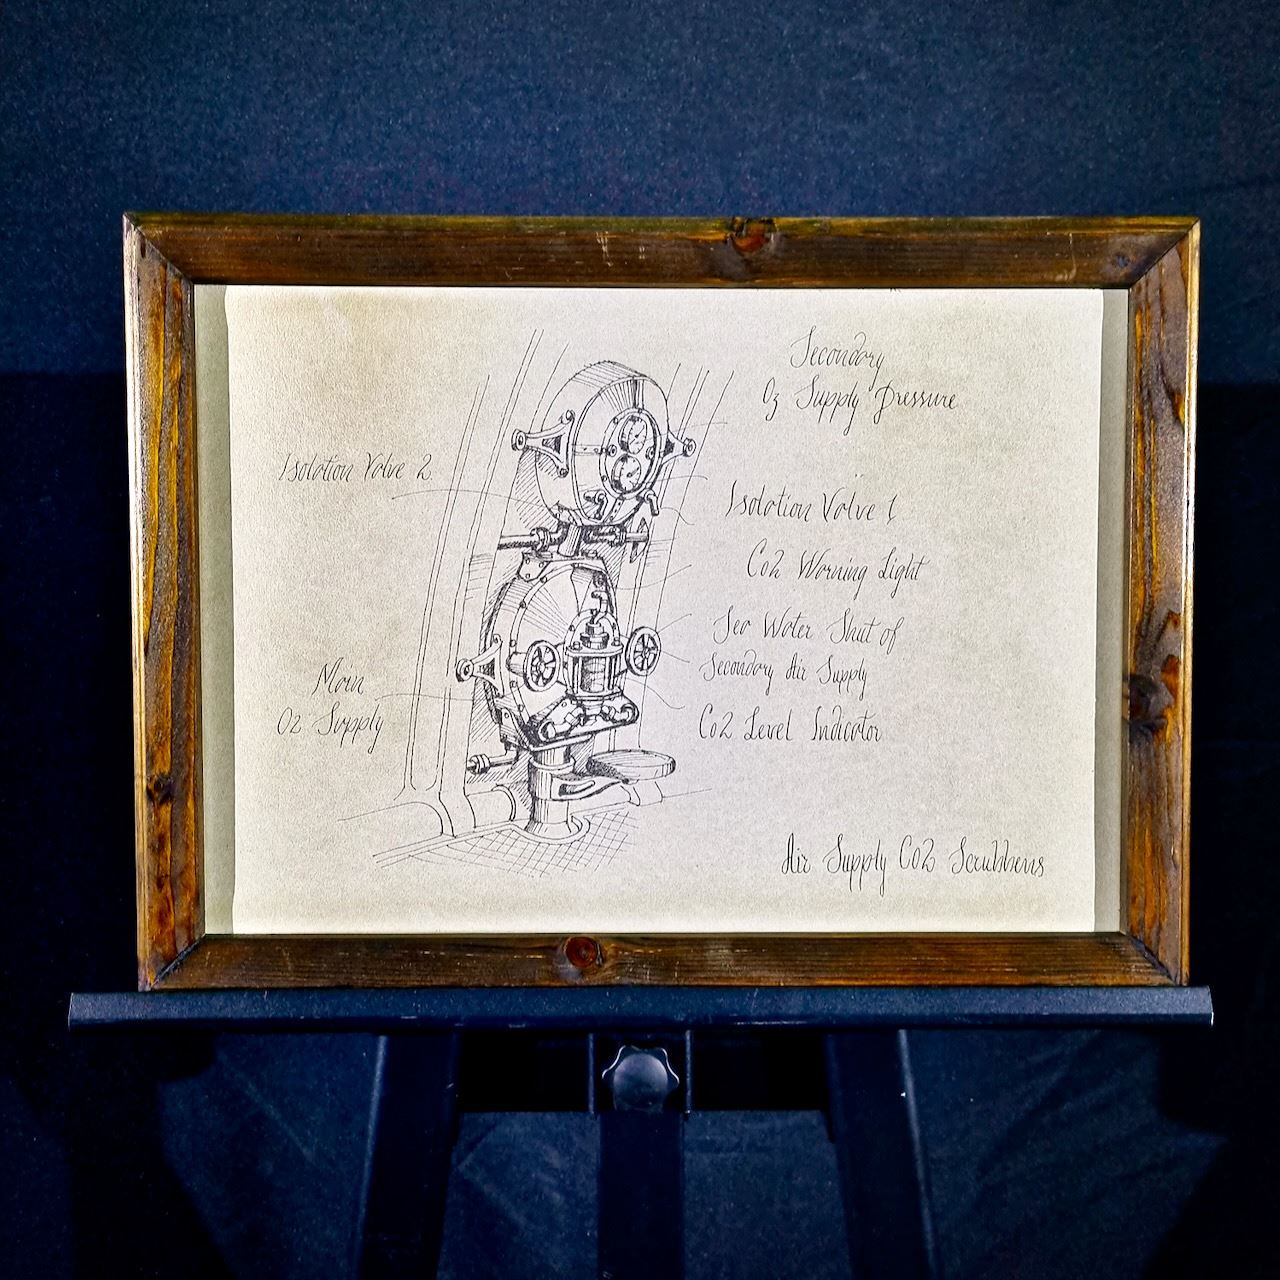 Secondary
O2 Supply Pressure
Isolation Valve 2.
Isolation Valve 1
Co2 Warning Light
Sea Water Shut of
Secondary Air Supply
Main
O2 Supply
Co2 Level Indicator
Air Supply Co2 Scrubbers